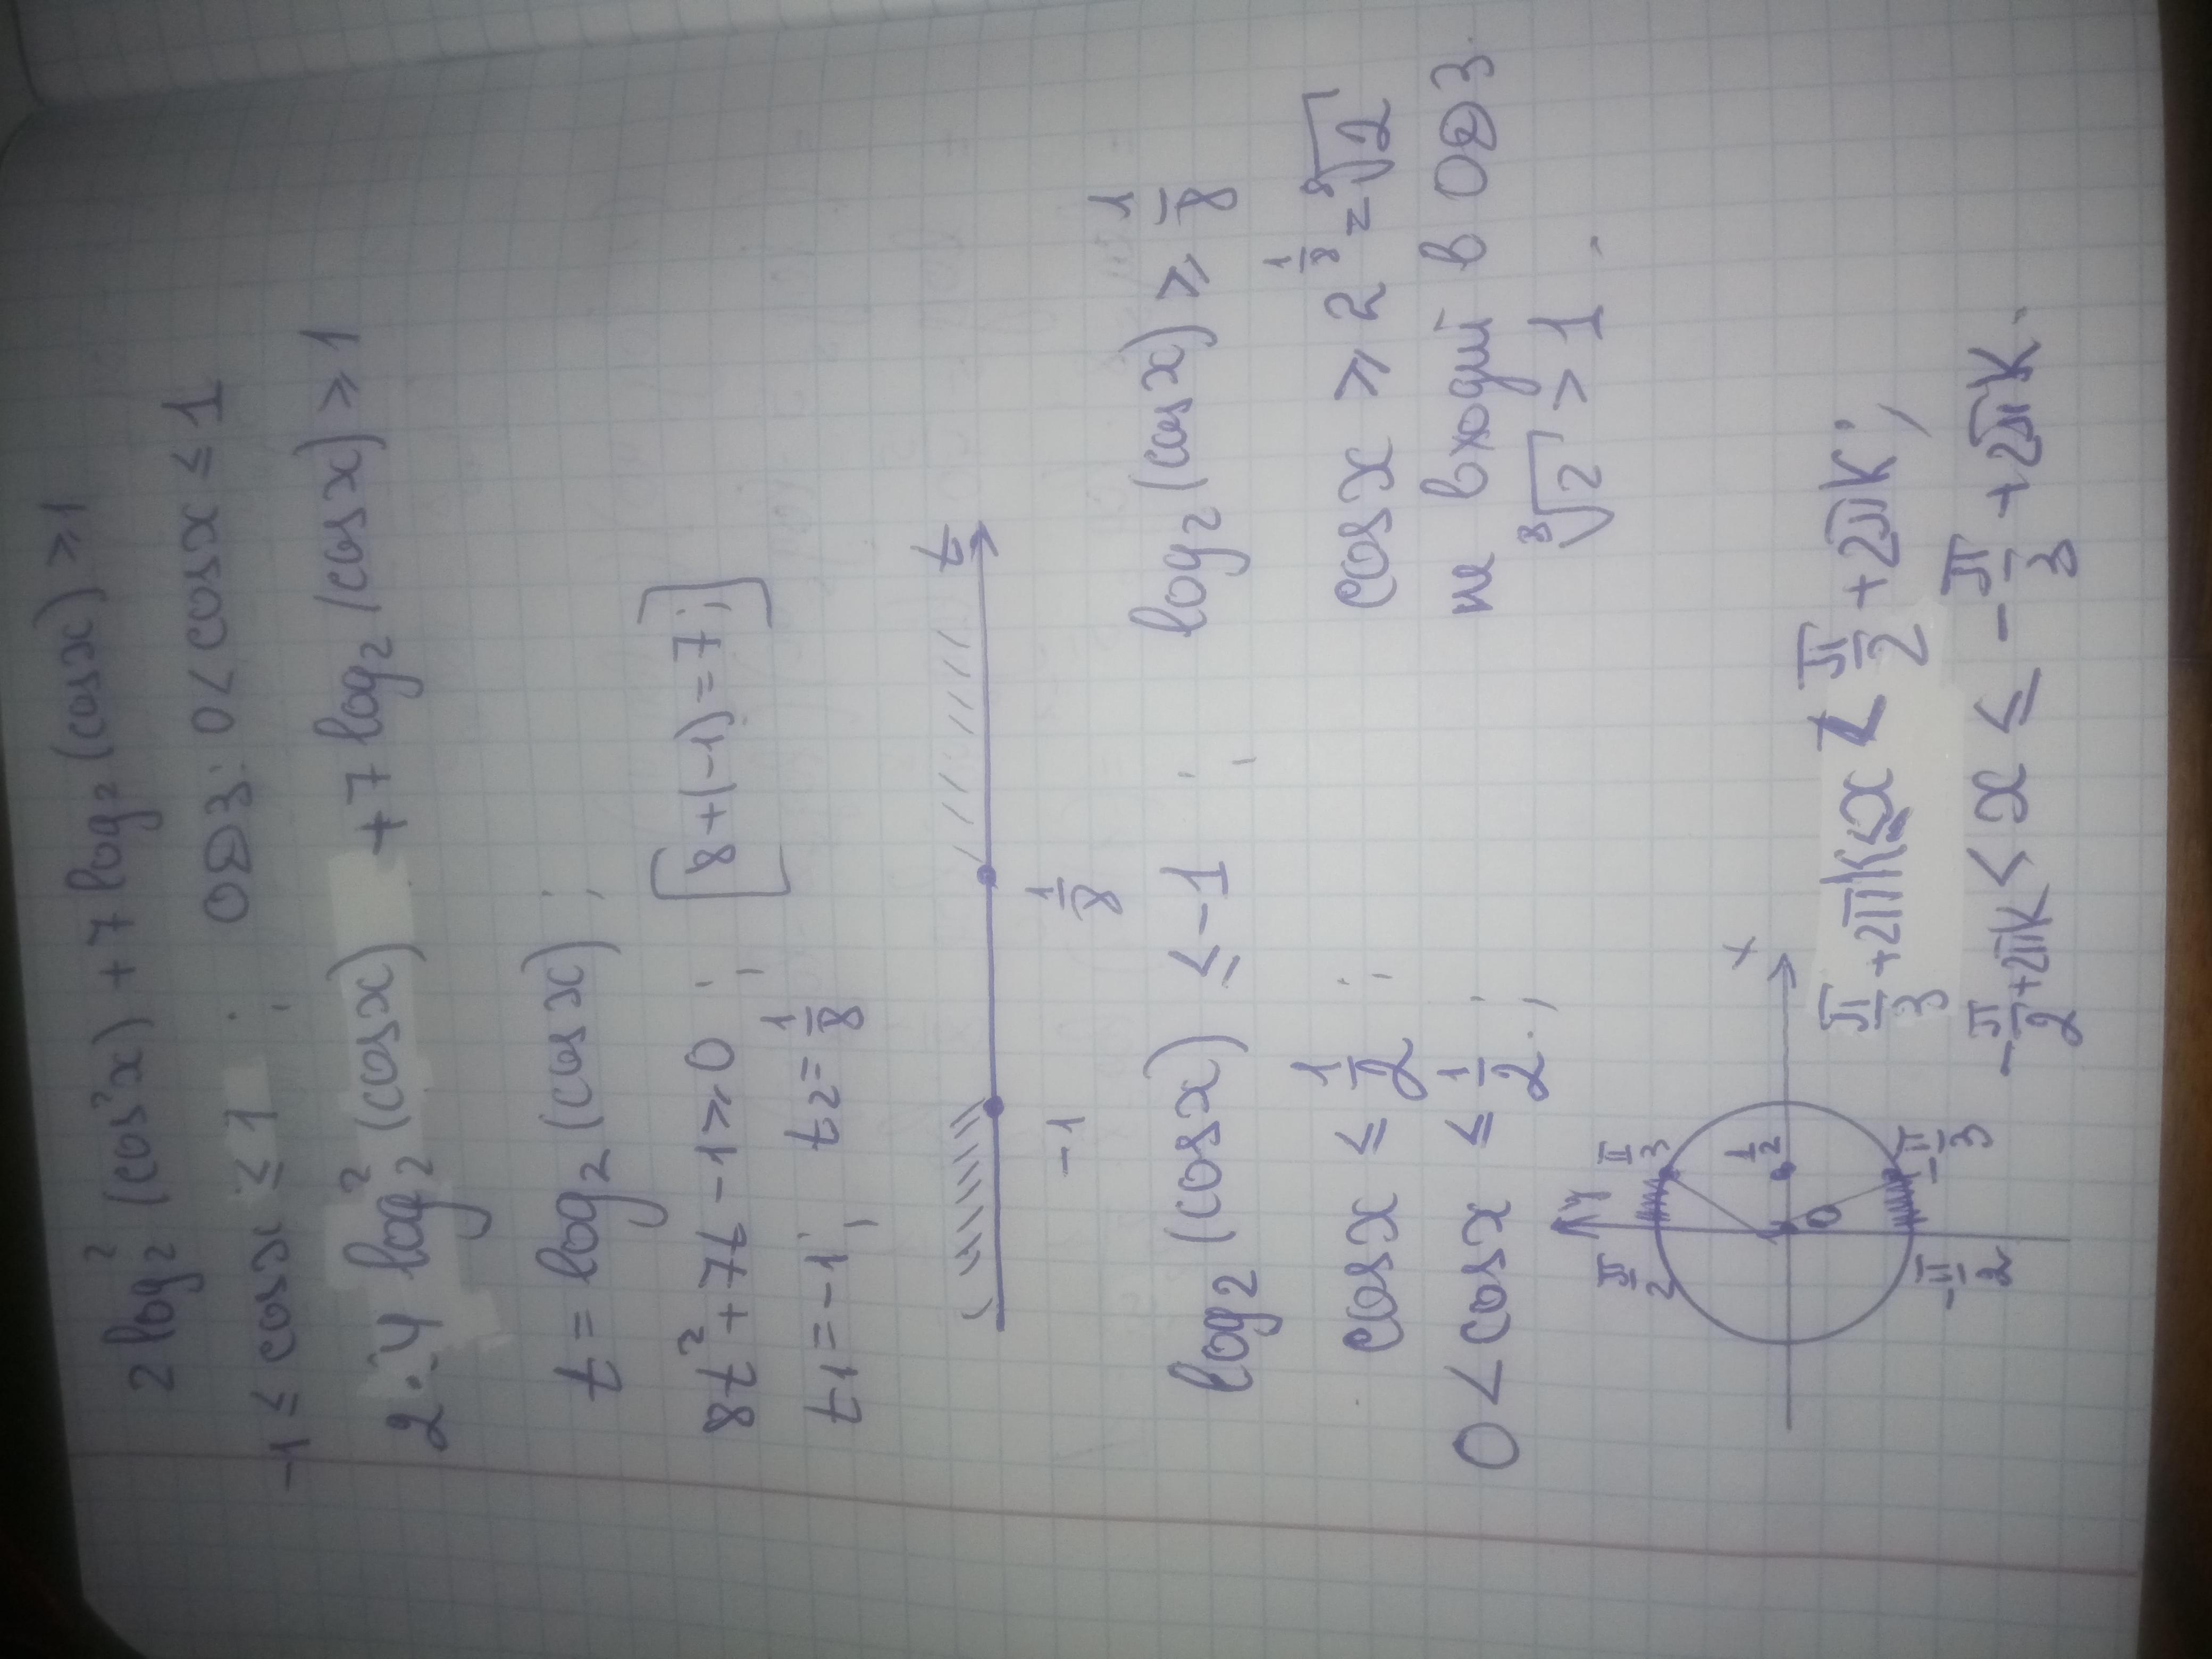 2 log₂² (cos²x) + 7 log₂ (cos x) ⩾ 1
-1 ≤ cos x ≤ 1 ; ОДЗ: 0 < cos x ≤ 1
2·4 log₂² (cos x) + 7 log₂ (cos x) ⩾ 1
t = log₂ (cos x) ;
8t² + 7t - 1 ⩾ 0 ; [8 + (-1) = 7;]
t₁ = -1 ; t₂ = 1/8
t
-1 1/8
log₂ (cos x) ≤ -1 ; log₂ (cos x) ⩾ 1/8
cos x ≤ 1/2 ; cos x ⩾ 2^(1/8) = ⁸√2
0 < cos x ≤ 1/2 ; не входит в ОДЗ.
⁸√2 > 1.
y x
π/2 π/3
1/2
0
-π/2 -π/3
π/3 + 2πk ≤ x < π/2 + 2πk ;
-π/2 + 2πk < x ≤ -π/3 + 2πk.